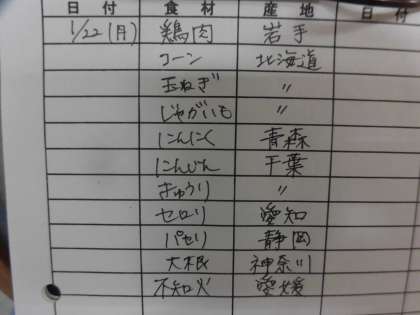 日付 食材 産地 日付
1/22(月) 鶏肉 岩手
コーン 北海道
玉ねぎ 〃
じゃがいも 〃
にんにく 青森
にんじん 千葉
きゅうり 〃
セロリ 愛知
パセリ 静岡
大根 神奈川
不知火 愛媛